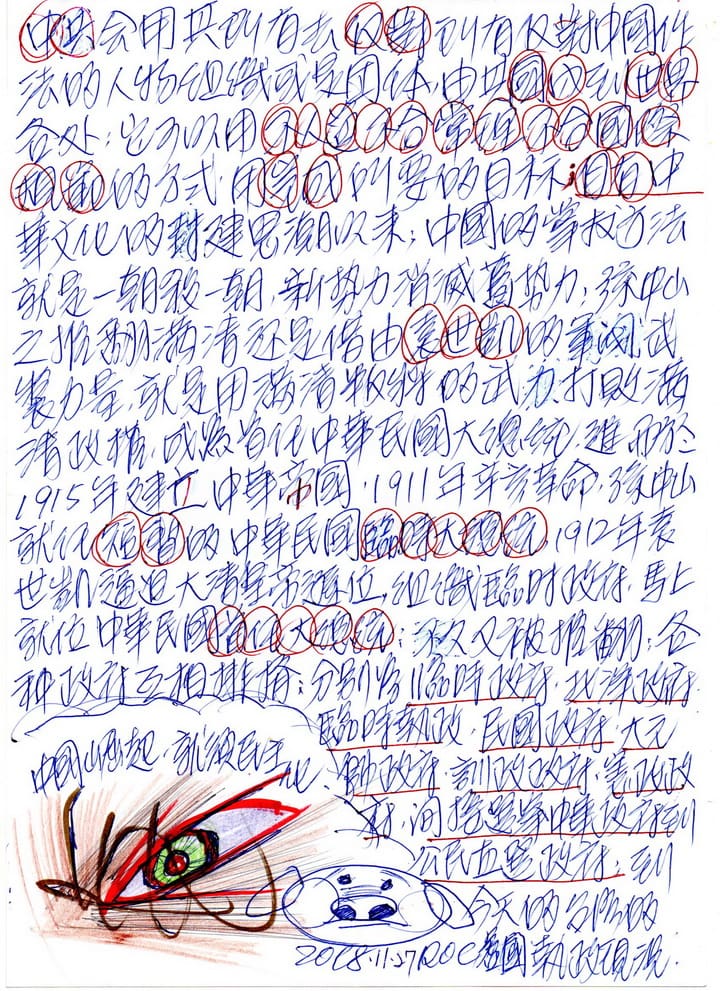 中共会用其所有去仅對所有仅對中國作
法的人物組織或是團体,由共國內到世界
各处;它可以用不人道不合常理不合國際
規範的方式,用完成所要的目标;自有中
華文化的封建思潮以来;中國的掌权方法
就是一朝殺一朝,新势力消滅舊势力,孫中山
之推翻满清还是借由袁世凱的軍阀武
裝力量,就是用满清叛转的武力打敗满
清政權,成為首任中華民國大總統,進而於
1915年建立中華帝國,1911年辛亥革命,孫中山
就任短暫的中華民國臨時大總統,1912年袁
世凱逼迫大清皇帝遜位,組織臨时政府,馬上
就位中華民國首任大總統;不久又被推翻;各
种政府互相排擠;分别為臨時政府.北洋政府.
臨時執政.民國政府.大元
中國崛起,就須民主化、帥政府.訓政政府.憲政政
府,间接選舉中華政府到
公民直選政府;到
今天的台灣的
2018.11.27 ROC 國執政現況.